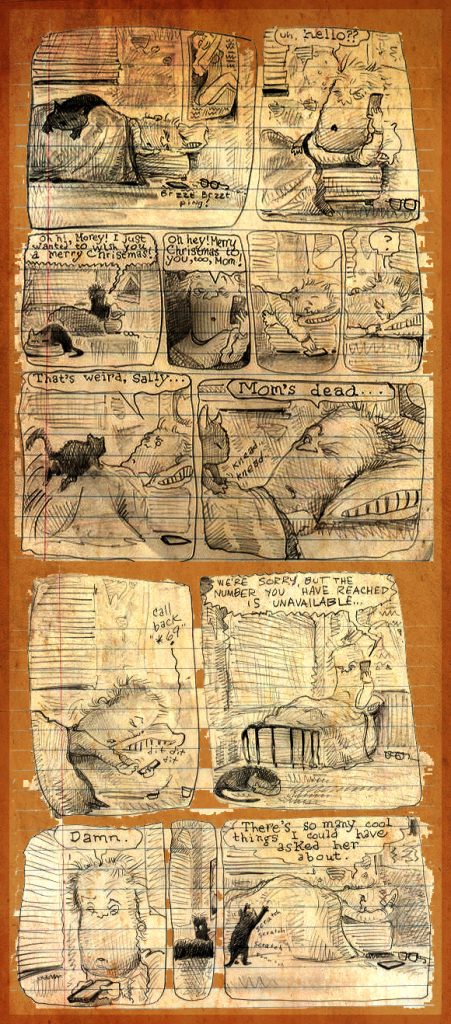 Brzzt Brzzt
ping!
uh, hello??
Oh hi, Morey! I just
wanted to wish you
a merry Christmas!
Oh hey! Merry
Christmas to
you, too, Mom!
?
That's weird, Sally...
Mom's dead...
knead
knead
call
back
"*69"
dit dit
dit
WE'RE SORRY, BUT THE
NUMBER YOU HAVE REACHED
IS UNAVAILABLE...
Damn..
There's so many cool
things I could have
asked her
about.
scratch
scratch
scratch